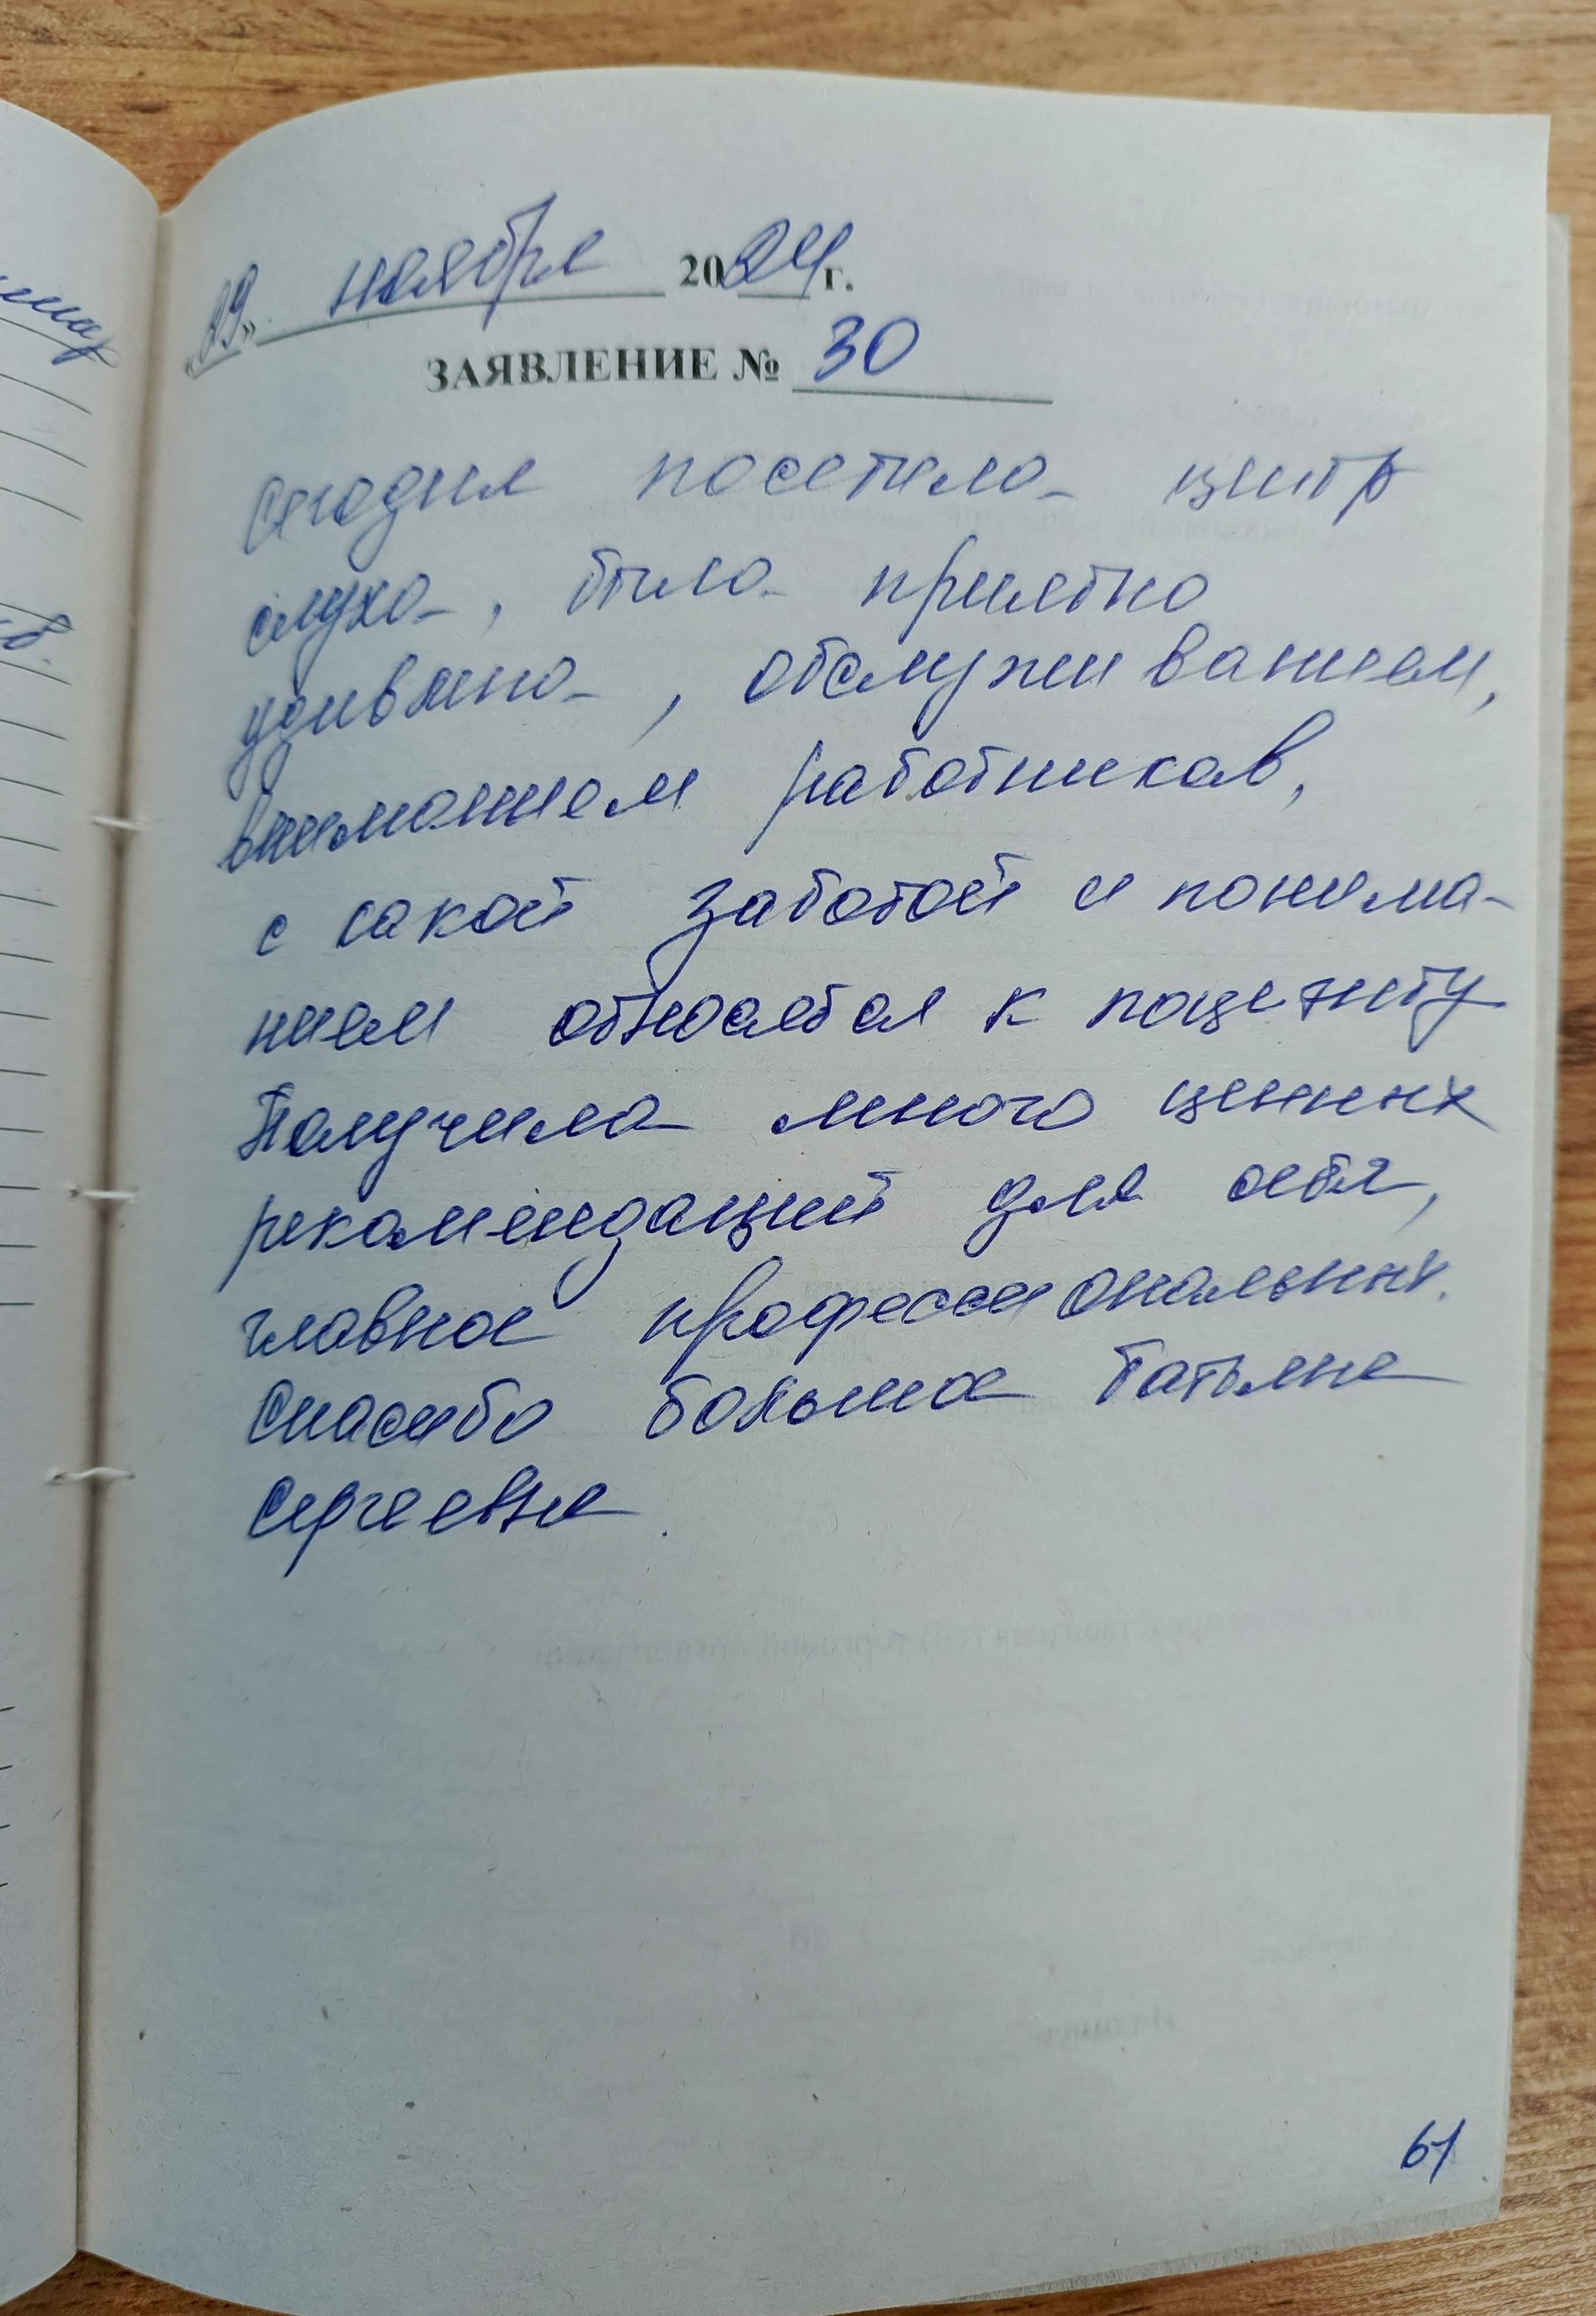 «29» ноября 2024 г.
ЗАЯВЛЕНИЕ № 30
Сегодня посетила центр
слуха, была приятно
удивлена, обслуживанием,
вниманием работников,
с какой заботой и понима-
нием относятся к пациенту
Получила много ценных
рекомендаций для себя,
главное профессиональных.
Спасибо большое Татьяне
Сергеевне.
61